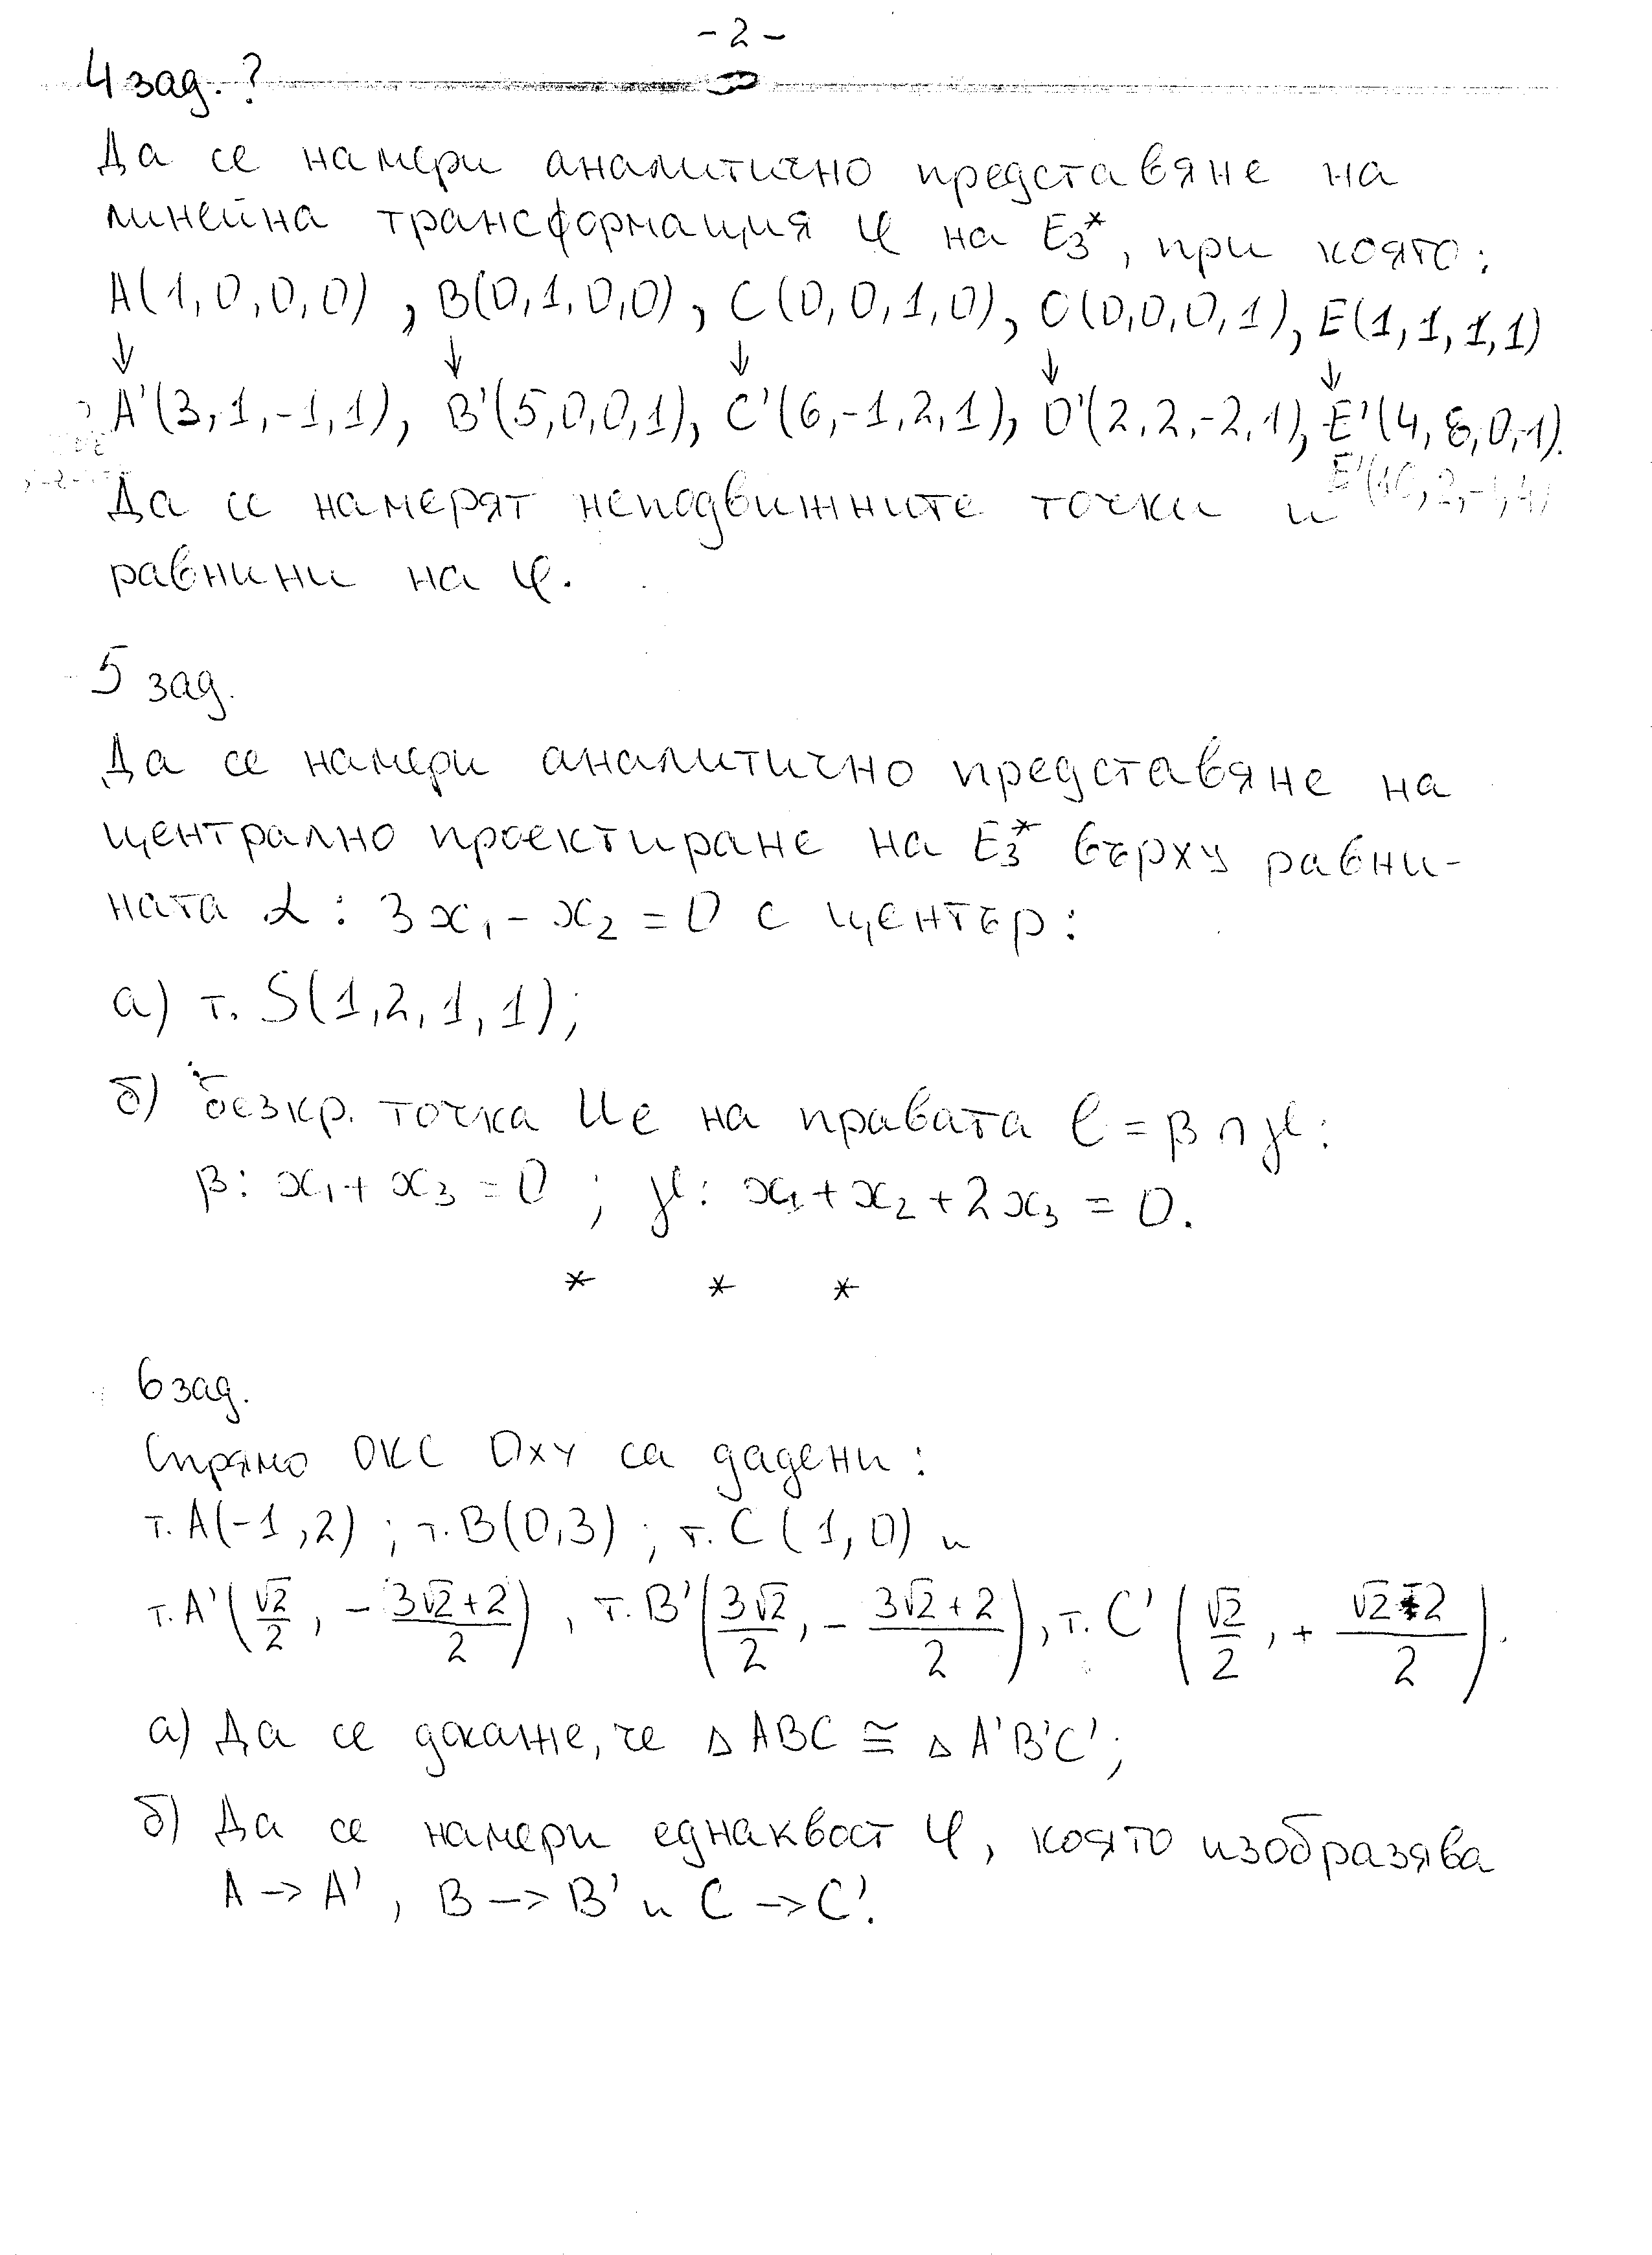 - 2 -
4 зад. ?
Да се намери аналитично представяне на
линейна трансформация φ на E₃*, при която:
A(1,0,0,0), B(0,1,0,0), C(0,0,1,0), O(0,0,0,1), E(1,1,1,1)
↓ ↓ ↓ ↓ ↓
A'(3,1,-1,1), B'(5,0,0,1), C'(6,-1,2,1), O'(2,2,-2,1), E'(4,6,0,-1).
Да се намерят неподвижните точки и
равнини на φ.
5 зад.
Да се намери аналитично представяне на
централно проектиране на E₃* върху равни-
ната α : 3x₁ - x₂ = 0 с център:
а) т. S(1,2,1,1);
б) безкр. точка Ue на правата ℓ = β ∩ γ:
β: x₁ + x₃ = 0 ; γ: x₁ + x₂ + 2x₃ = 0.
* * *
6 зад.
Спрямо ОКС Oxy са дадени:
т. A(-1,2) ; т. B(0,3) ; т. C(1,0) и
т. A'(√2/2, - (3√2+2)/2), т. B'(3√2/2, - (3√2+2)/2), т. C'(√2/2, + (√2-2)/2).
а) Да се докаже, че △ ABC ≅ △ A'B'C';
б) Да се намери еднаквост φ, която изобразява
A -> A', B -> B' и C -> C'.